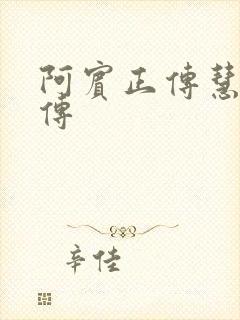 阿賓正傳慧
傳
辛佳